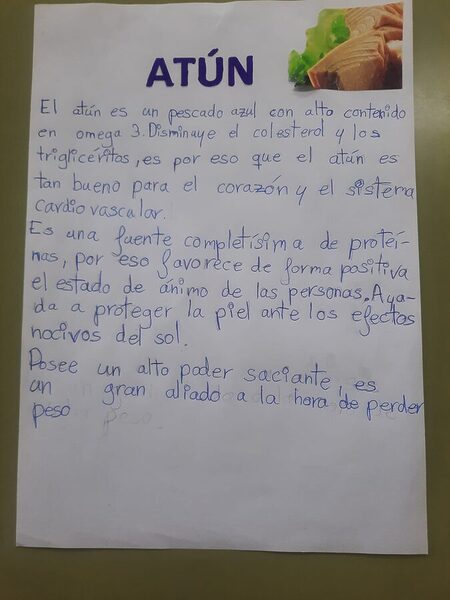 ATÚN
El atún es un pescado azul con alto contenido
en omega 3. Disminuye el colesterol y los
triglicéritos, es por eso que el atún es
tan bueno para el corazón y el sistema
cardiovascular.
Es una fuente completísima de proteí-
nas, por eso favorece de forma positiva
el estado de ánimo de las personas. Ayu-
da a proteger la piel ante los efectos
nocivos del sol.
Posee un alto poder saciante, es
un gran aliado a la hora de perder
peso peso.